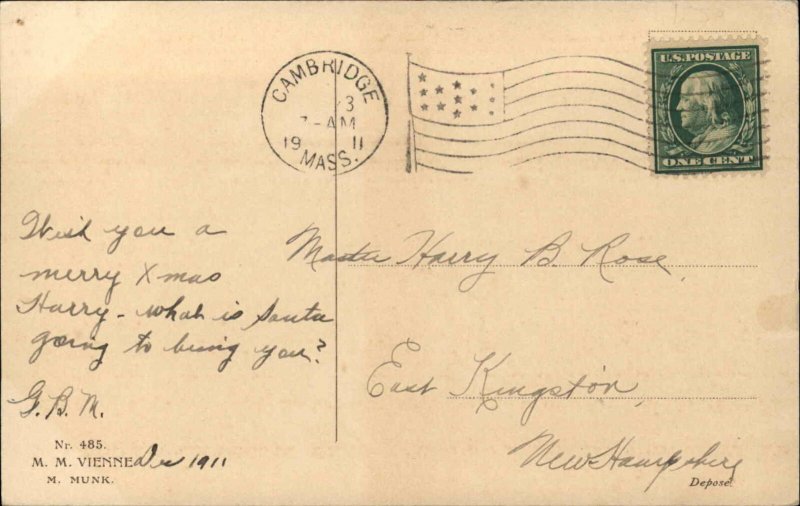 CAMBRIDGE
3
-AM
19 11
MASS.
U.S. POSTAGE
ONE CENT
Wish you a
merry Xmas
Harry - what is Santa
going to bring you?
G.B.M.
Master Harry B. Rose,
East Kingston,
New Hampshire
Nr. 485.
M. M. VIENNE Dec 1911
M. MUNK.
Deposé.